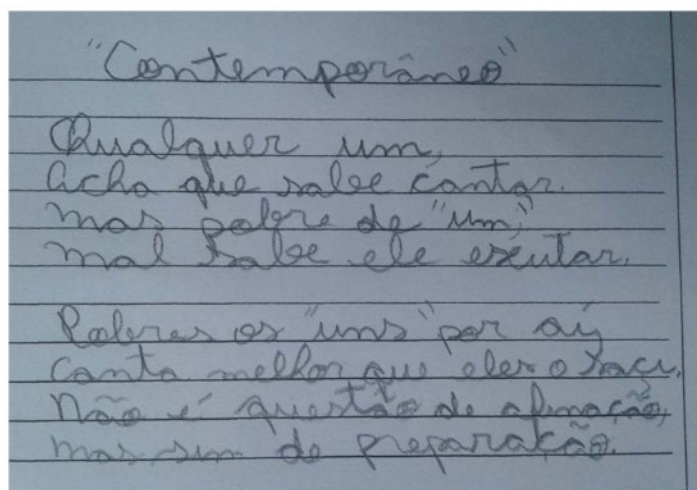 "Contemporâneo"
Qualquer um,
acha que sabe cantar.
mas pobre de "um",
mal sabe ele escutar.
Pobres os "uns" por aí,
canta melhor que eles o saci.
Não é questão de afinação,
mas sim de preparação.